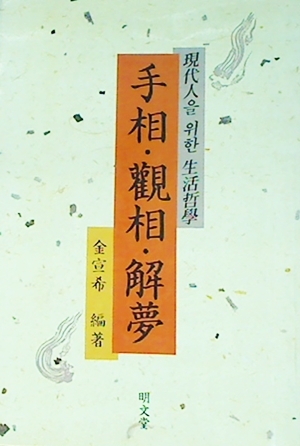 現代人을 위한 生活哲學
手相·觀相·解夢
金宣希 編著
明文堂